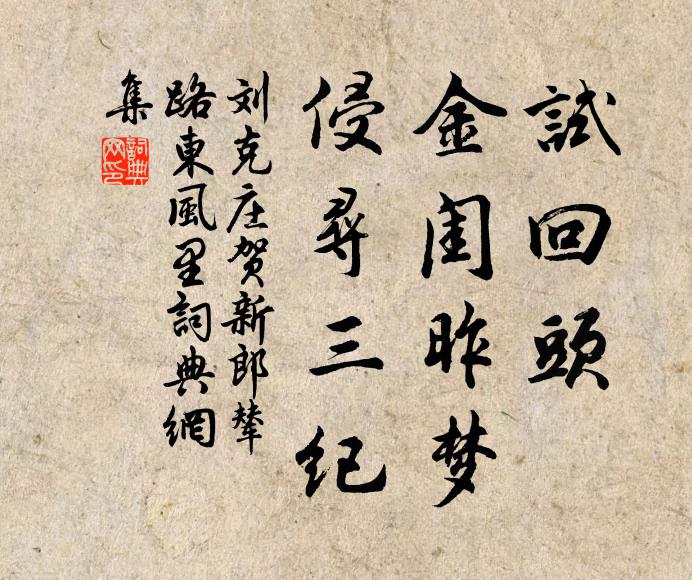 試回頭
金闺昨梦
侵尋三纪
刘克庄贺新郎輦
路東風里詞典網
集
詞典
网印